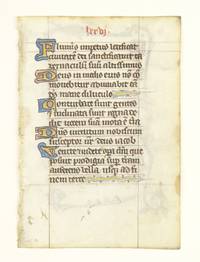 lxxvj
Fluminis impetus letificat
civitatem dei sanctificavit ta
bernaculum suum altissimus
Deus in medio eius non co
movebitur adiuvabit ea
deus mane diluculo
Conturbate sunt gentes
inclinata sunt regna de
dit vocem suam mota e tra
Dns virtutum nobiscum
susceptor nr deus iacob
Venite et videte opa dni que
posuit prodigia sup terram
auferens bella usq ad fi
nem terre